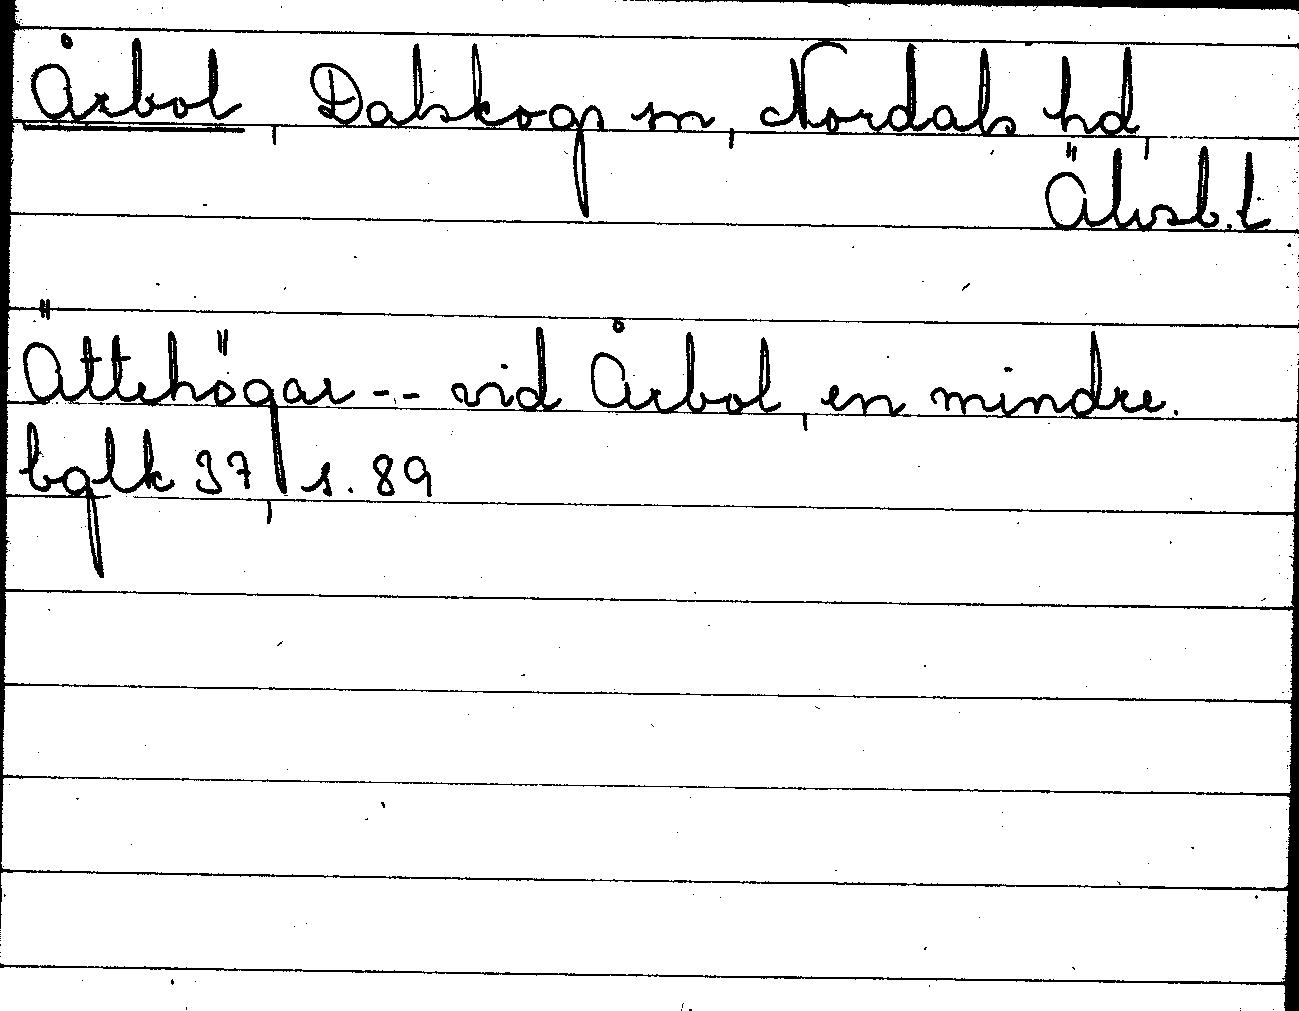 Årbol, Dalskogs sn, Nordals hd,
Älvsb. l
Ättehögar -- vid Årbol, en mindre.
bglk 37, s. 89